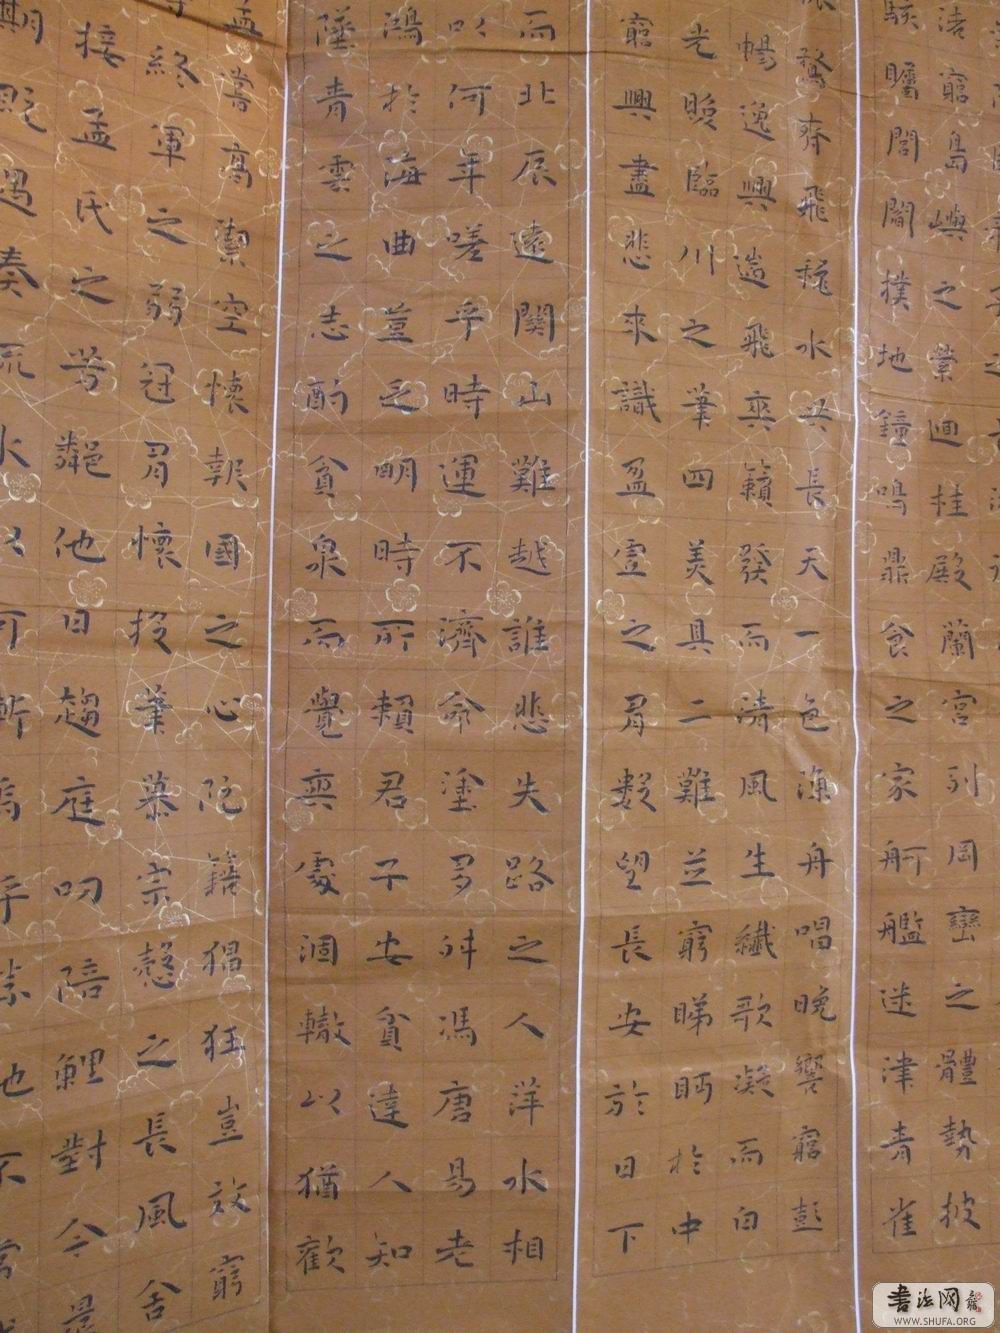 渚窮島嶼之縈迴桂殿蘭宮列岡巒之體勢披
駭矚閭閻撲地鐘鳴鼎食之家舸艦迷津青雀
鶩齊飛秋水共長天一色漁舟唱晚響窮彭
暢逸興遄飛爽籟發而清風生纖歌凝而白
光臨川之筆四美具二難並窮睇眄於中
窮興盡悲來識盈虛之有數望長安於日下
而北辰遠關山難越誰悲失路之人萍水相
以何年嗟乎時運不濟命塗多舛馮唐易老
鴻於海曲豈乏明時所賴君子安貧達人知
墜青雲之志酌貪泉而覺爽處涸轍以猶歡
孟嘗高潔空懷報國之心阮籍猖狂豈效窮
終軍之弱冠有懷投筆慕宗慤之長風舍
接孟氏之芳鄰他日趨庭叨陪鯉對今晨
期既遇奏流水以
书法网
WWW.SHUFA.ORG